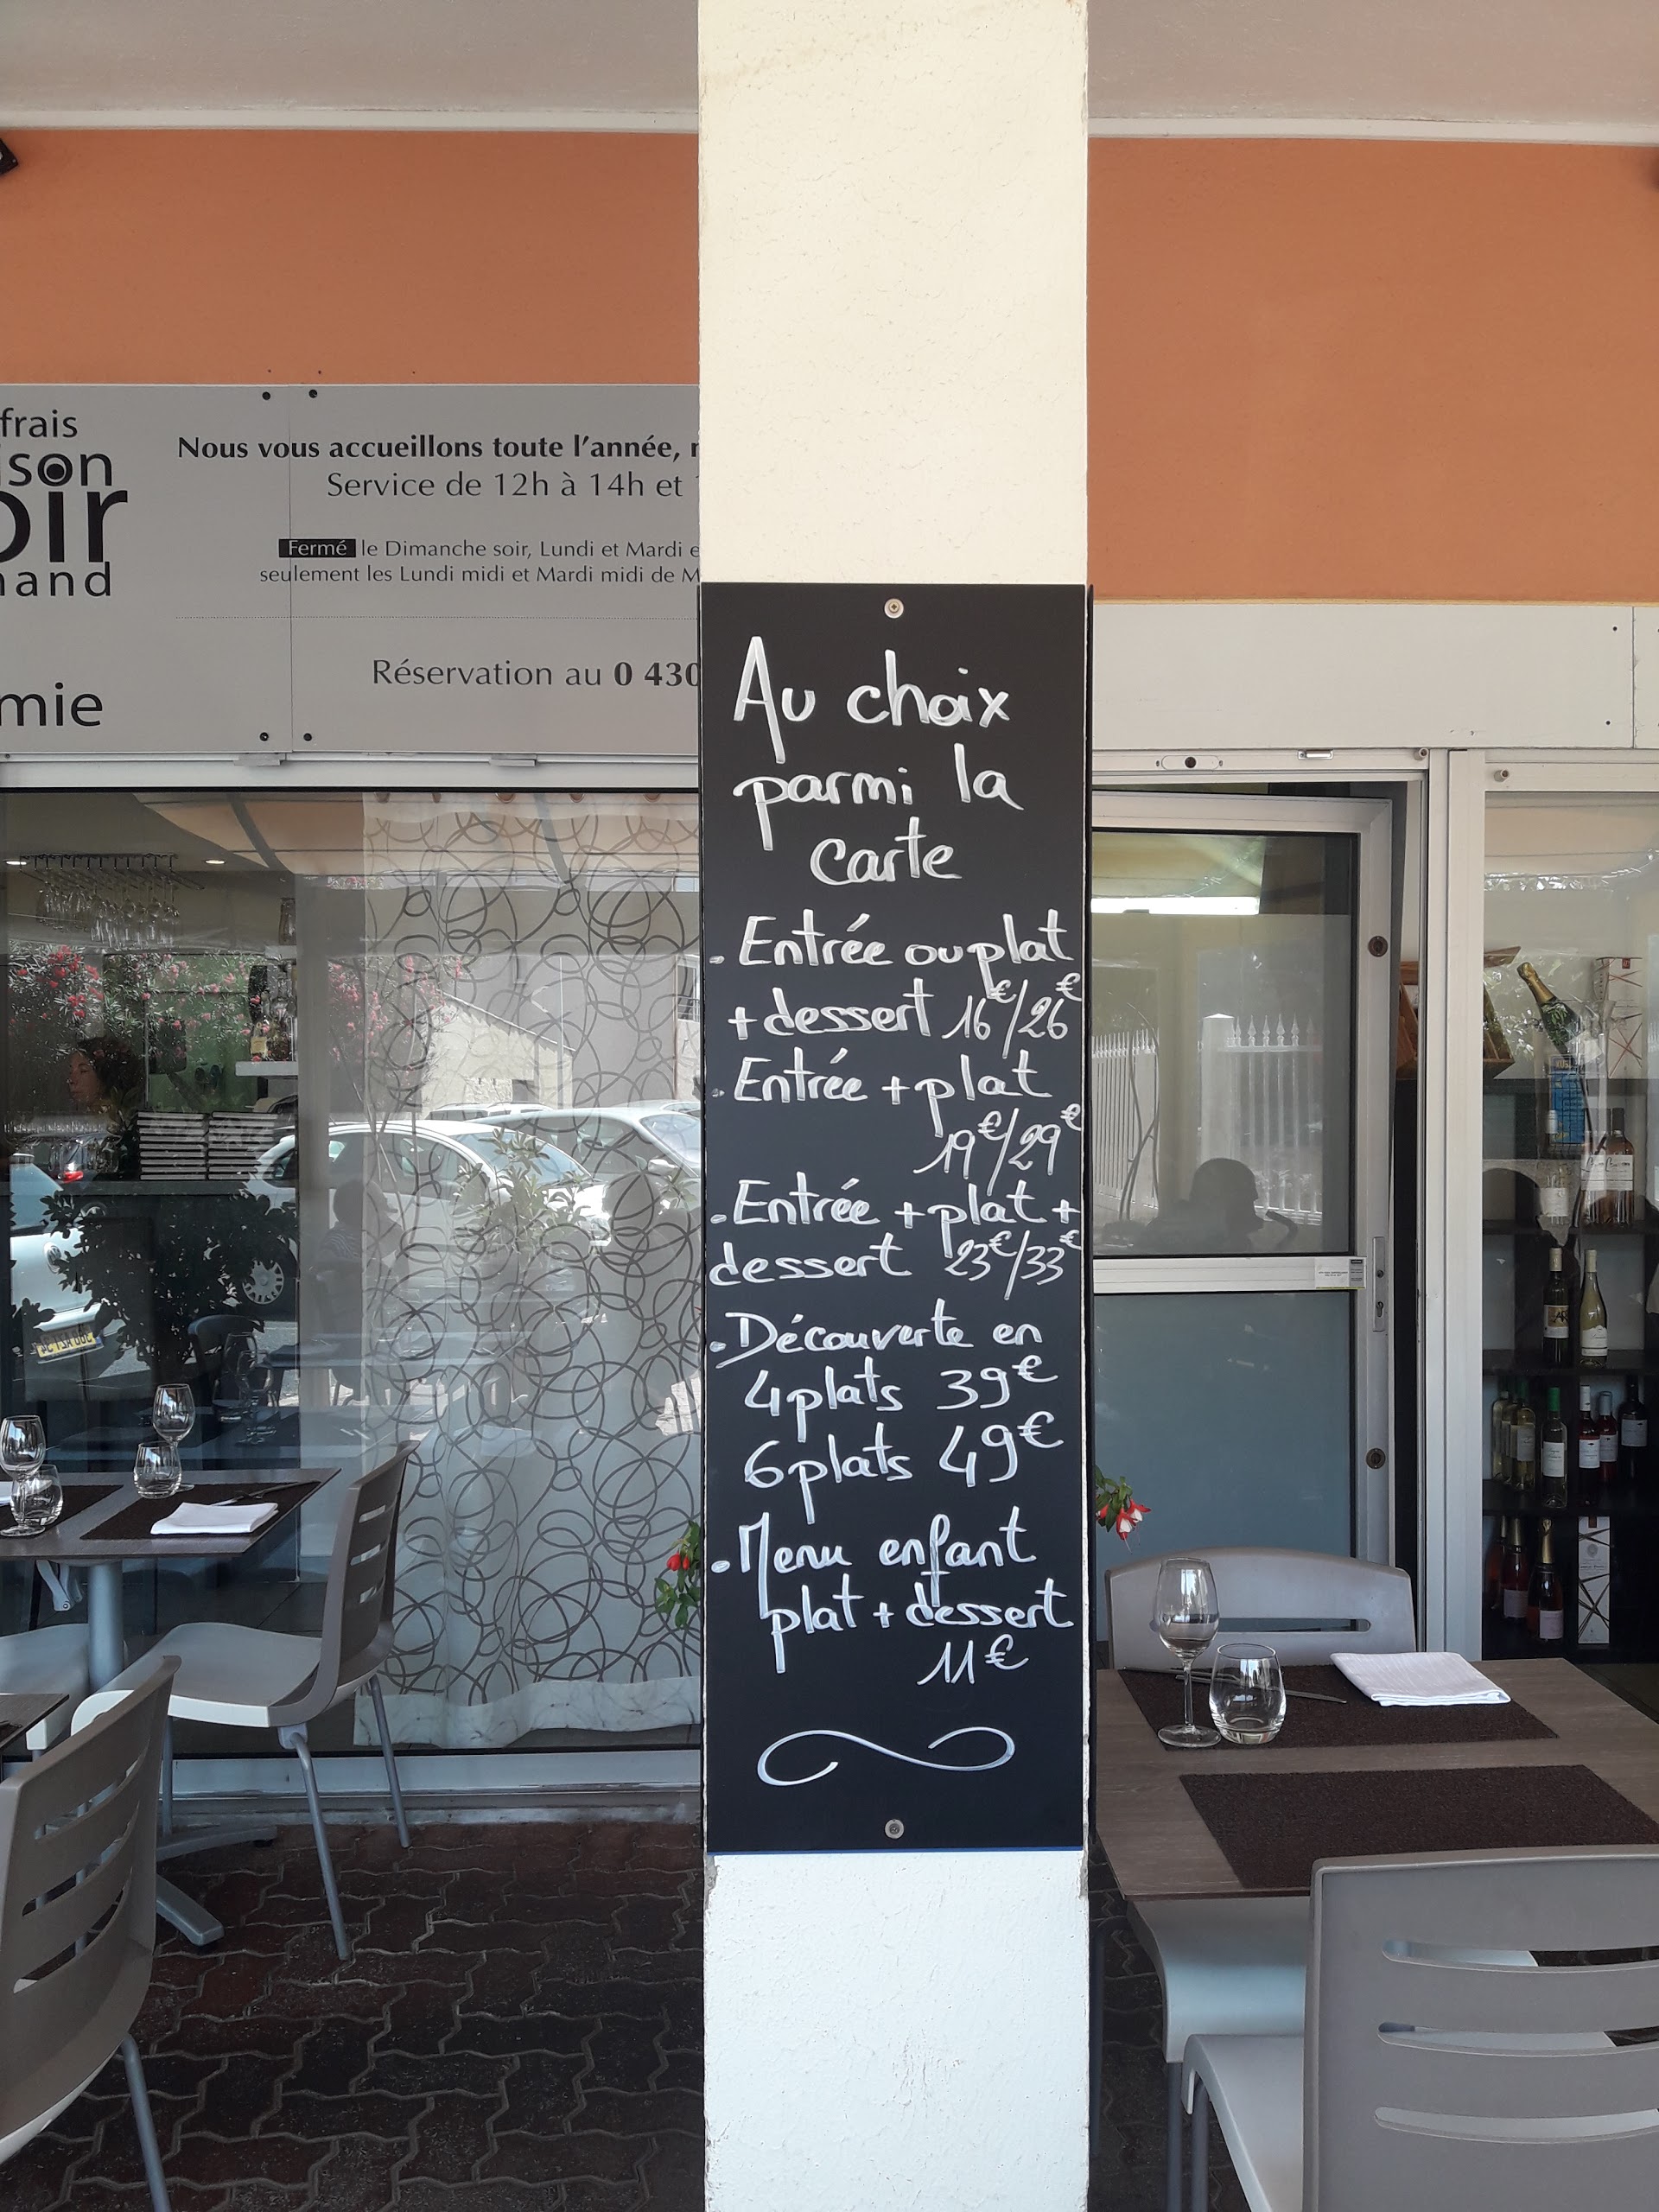 frais
ison
oir
mand
mie
Nous vous accueillons toute l'année,
Service de 12h à 14h et
Fermé le Dimanche soir, Lundi et Mardi
seulement les Lundi midi et Mardi midi de
Réservation au 0 430
Au choix
parmi la
carte
. Entrée ou plat
+ dessert 16€/26€
. Entrée + plat
19€/29€
. Entrée + plat +
dessert 23€/33€
. Découverte en
4 plats 39€
6 plats 49€
. Menu enfant
plat + dessert
11€